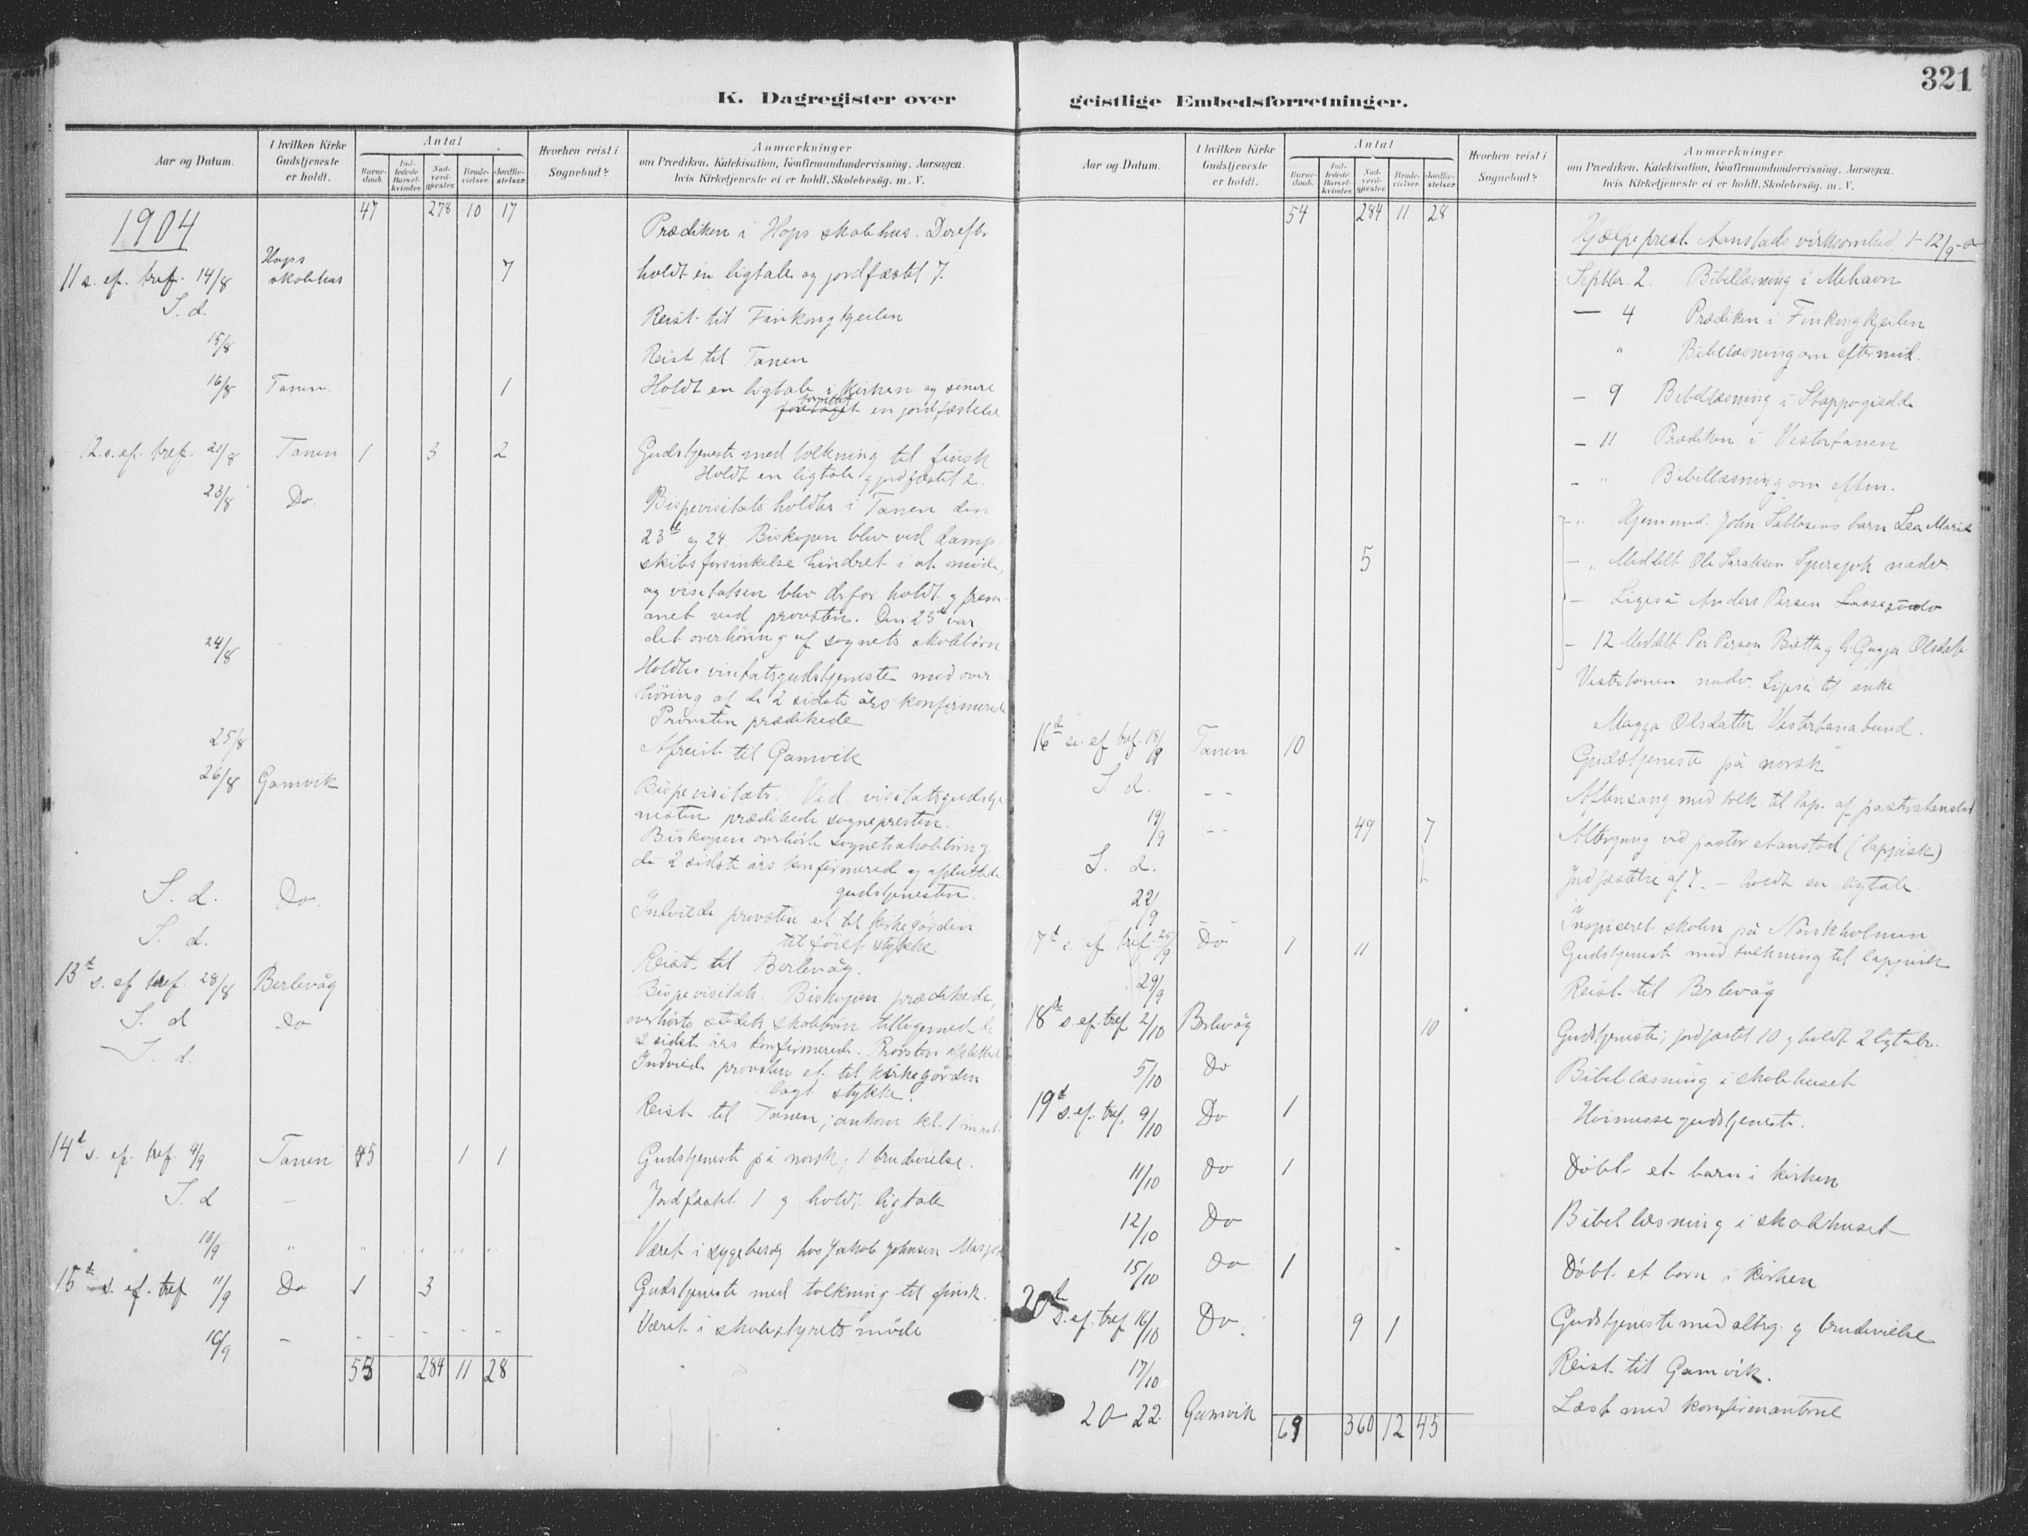 321
K. Dagregister over geistlige Embedsforretninger.
Aar og Datum.
I hvilken Kirke Gudstjeneste er holdt.
Antal
Barnedaab.
Indledede Barselkvinder.
Nadverdgjester
Brudevielser.
Jordfæstelser.
Hvorhen reist i Sognebud?
Anmærkninger
om Prædiken, Katekisation, Konfirmandundervisning, Aarsagen,
hvis Kirketjeneste ei er holdt, Skolebesøg, m. V.
1904
47 278 10 17
Prædiken i Hops skolehus. Derefter
11 s. ef. tref. 14/8 Hops skolehus 7 holdt en ligtale og jordfæstet 7.
S. d. Reist til Finkongkjeilen
15/8 Reist til Tanen
16/8 Tanen. 1 Holdt en ligtale i kirken og senere
forrettet en jordfæstelse
12. s. ef. tref. 21/8 Tanen 1 3 2 Gudstjeneste med tolkning til finsk
Holdt en ligtale g jordfæstet 2.
23/8 Do. Bispevisitats holdtes i Tanen den
23de og 24. Biskopen blev ved damp-
skibsforsinkelse hindret i at møde,
og visitatsen blev derfor holdt g frem-
met ved provsten. Den 23de var
det overhøring af sognets skolebørn
24/8 Holdtes visitatsgudstjeneste med over-
høring af de 2 sidste års konfirmerede
Provsten prædikede
25/8 Afreist til Gamvik
26/8 Gamvik Bispevisitats. Ved visitatsgudstje
nesten prædikede sognepresten.
Biskopen overhørte sognets skolebørn g
de 2 sidste års konfirmerede og afsluttede
gudstjenesten.
S. d. Do. Indviede provsten et til kirkegården
tilføiet stykke
S. d. Reist til Berlevåg.
13de s. ef tref 28/8 Berlevåg Bispevisitats. Biskopen prædikede,
S. d Do overhørte stedets skolebørn tilligemed de
2 sidste års konfirmerede. Provsten
S. d. Indviede provsten et til kirkegården
lagt stykke.
Reist til Tanen; ankom kl. 1
14d s. ef. tref. 4/9 Tanen 5 1 1 Gudstjeneste på norsk; 1 brudevielse.
S. d – Jordfæstet 1 g holdt ligtale
10/9 " " " " " Været i sygebesøg hos Jakob Johnsen Masjok
15d s. ef. tref 11/9 Do 1 3 Gudstjeneste med tolkning til finsk.
– Været i skolestyrets møde
53 284 11 28
Aar og Datum.
I hvilken Kirke Gudstjeneste er holdt.
Antal
Barnedaab.
Indledede Barselkvinder.
Nadverdgjester
Brudevielser.
Jordfæstelser.
Hvorhen reist i Sognebud?
Anmærkninger
om Prædiken, Katekisation, Konfirmandundervisning, Aarsagen,
hvis Kirketjeneste ei er holdt, Skolebesøg, m. V.
54 284 11 28
Hjælpeprest Aanstads virksomhed 1-12/9-04
Septbr. 2. Bibellæsning i Mehavn
— 4 Prædiken i Finkongkjeilen
" Bibellæsning om eftermid.
– 9 Bibellæsning i Stappogiedde
– 11 Prædiken i Vestertanen
– " Bibellæsning om aften.
– " Hjemmed. John Sablosens barn Lea Marie
5 – " Meddelt Ole Saraksen nadv.
– Ligeså Anders Persen
– 12 Meddelt Per Persen Bietta g h. Gugja Olsdatter
Vestertanen nadv. Ligeså til enke
Magga Olsdatter Vestertanabund.
16de s. ef tref. 18/9 Tanen 10 Gudstjeneste på norsk
S. d. – – Aftensang med tolk. til lap. af pastor Aanstad
19/9 – – 49 7 Altergang ved pastor Aanstad (lappisk)
S. d. Jordfæstelse af 7. – holdt en ligtale.
22/9 Inspiceret skolen på Norskholmen
17d s. ef. tref. 25/9 Do 1 11 Gudstjeneste med tolkning til lappisk
29/9 Reist til Berlevåg
18de s. ef. tref 2/10 Berlevåg 10 Gudstjeneste; jordfæstet 10 g holdt 2 ligtaler.
5/10 Do Bibellæsning i skolehuset
19d s. ef. tref. 9/10 Do 1 Høimessegudstjeneste.
11/10 Do 1 Døbt et barn i kirken
12/10 Do Bibellæsning i skolehuset
15/10 Do 1 Døbt et barn i kirken
20d s. ef. tref 16/10 Do. 9 1 Gudstjeneste med altrg. g brudevielse
17/10 Reist til Gamvik.
20–22. Gamvik Læst med konfirmanterne
69 360 12 45